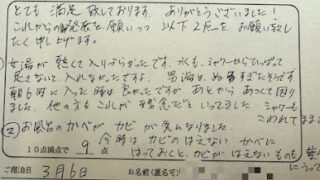 とても 満足 致しております。 ありがとうございました!
これからの 発展を 願いつつ 以下 2点を お願い致し
たく申し上げます。
女湯が 熱くて 入りづらかった です。水も、シャワーからひっぱって
足さないと 入れなかったですよ。 男湯は、ぬるすぎたそうです
朝6時に入った時は 良かったですが あとから あつくて困り
ました。他の方も これが 残念だと いってました シャワーも
② お風呂の かべが カビ が 気になりました。
10点満点で 9 今時は カビの はえない かべに
はっておくと、カビが はえないものも
ご宿泊日 3月6日 お名前(匿名可)